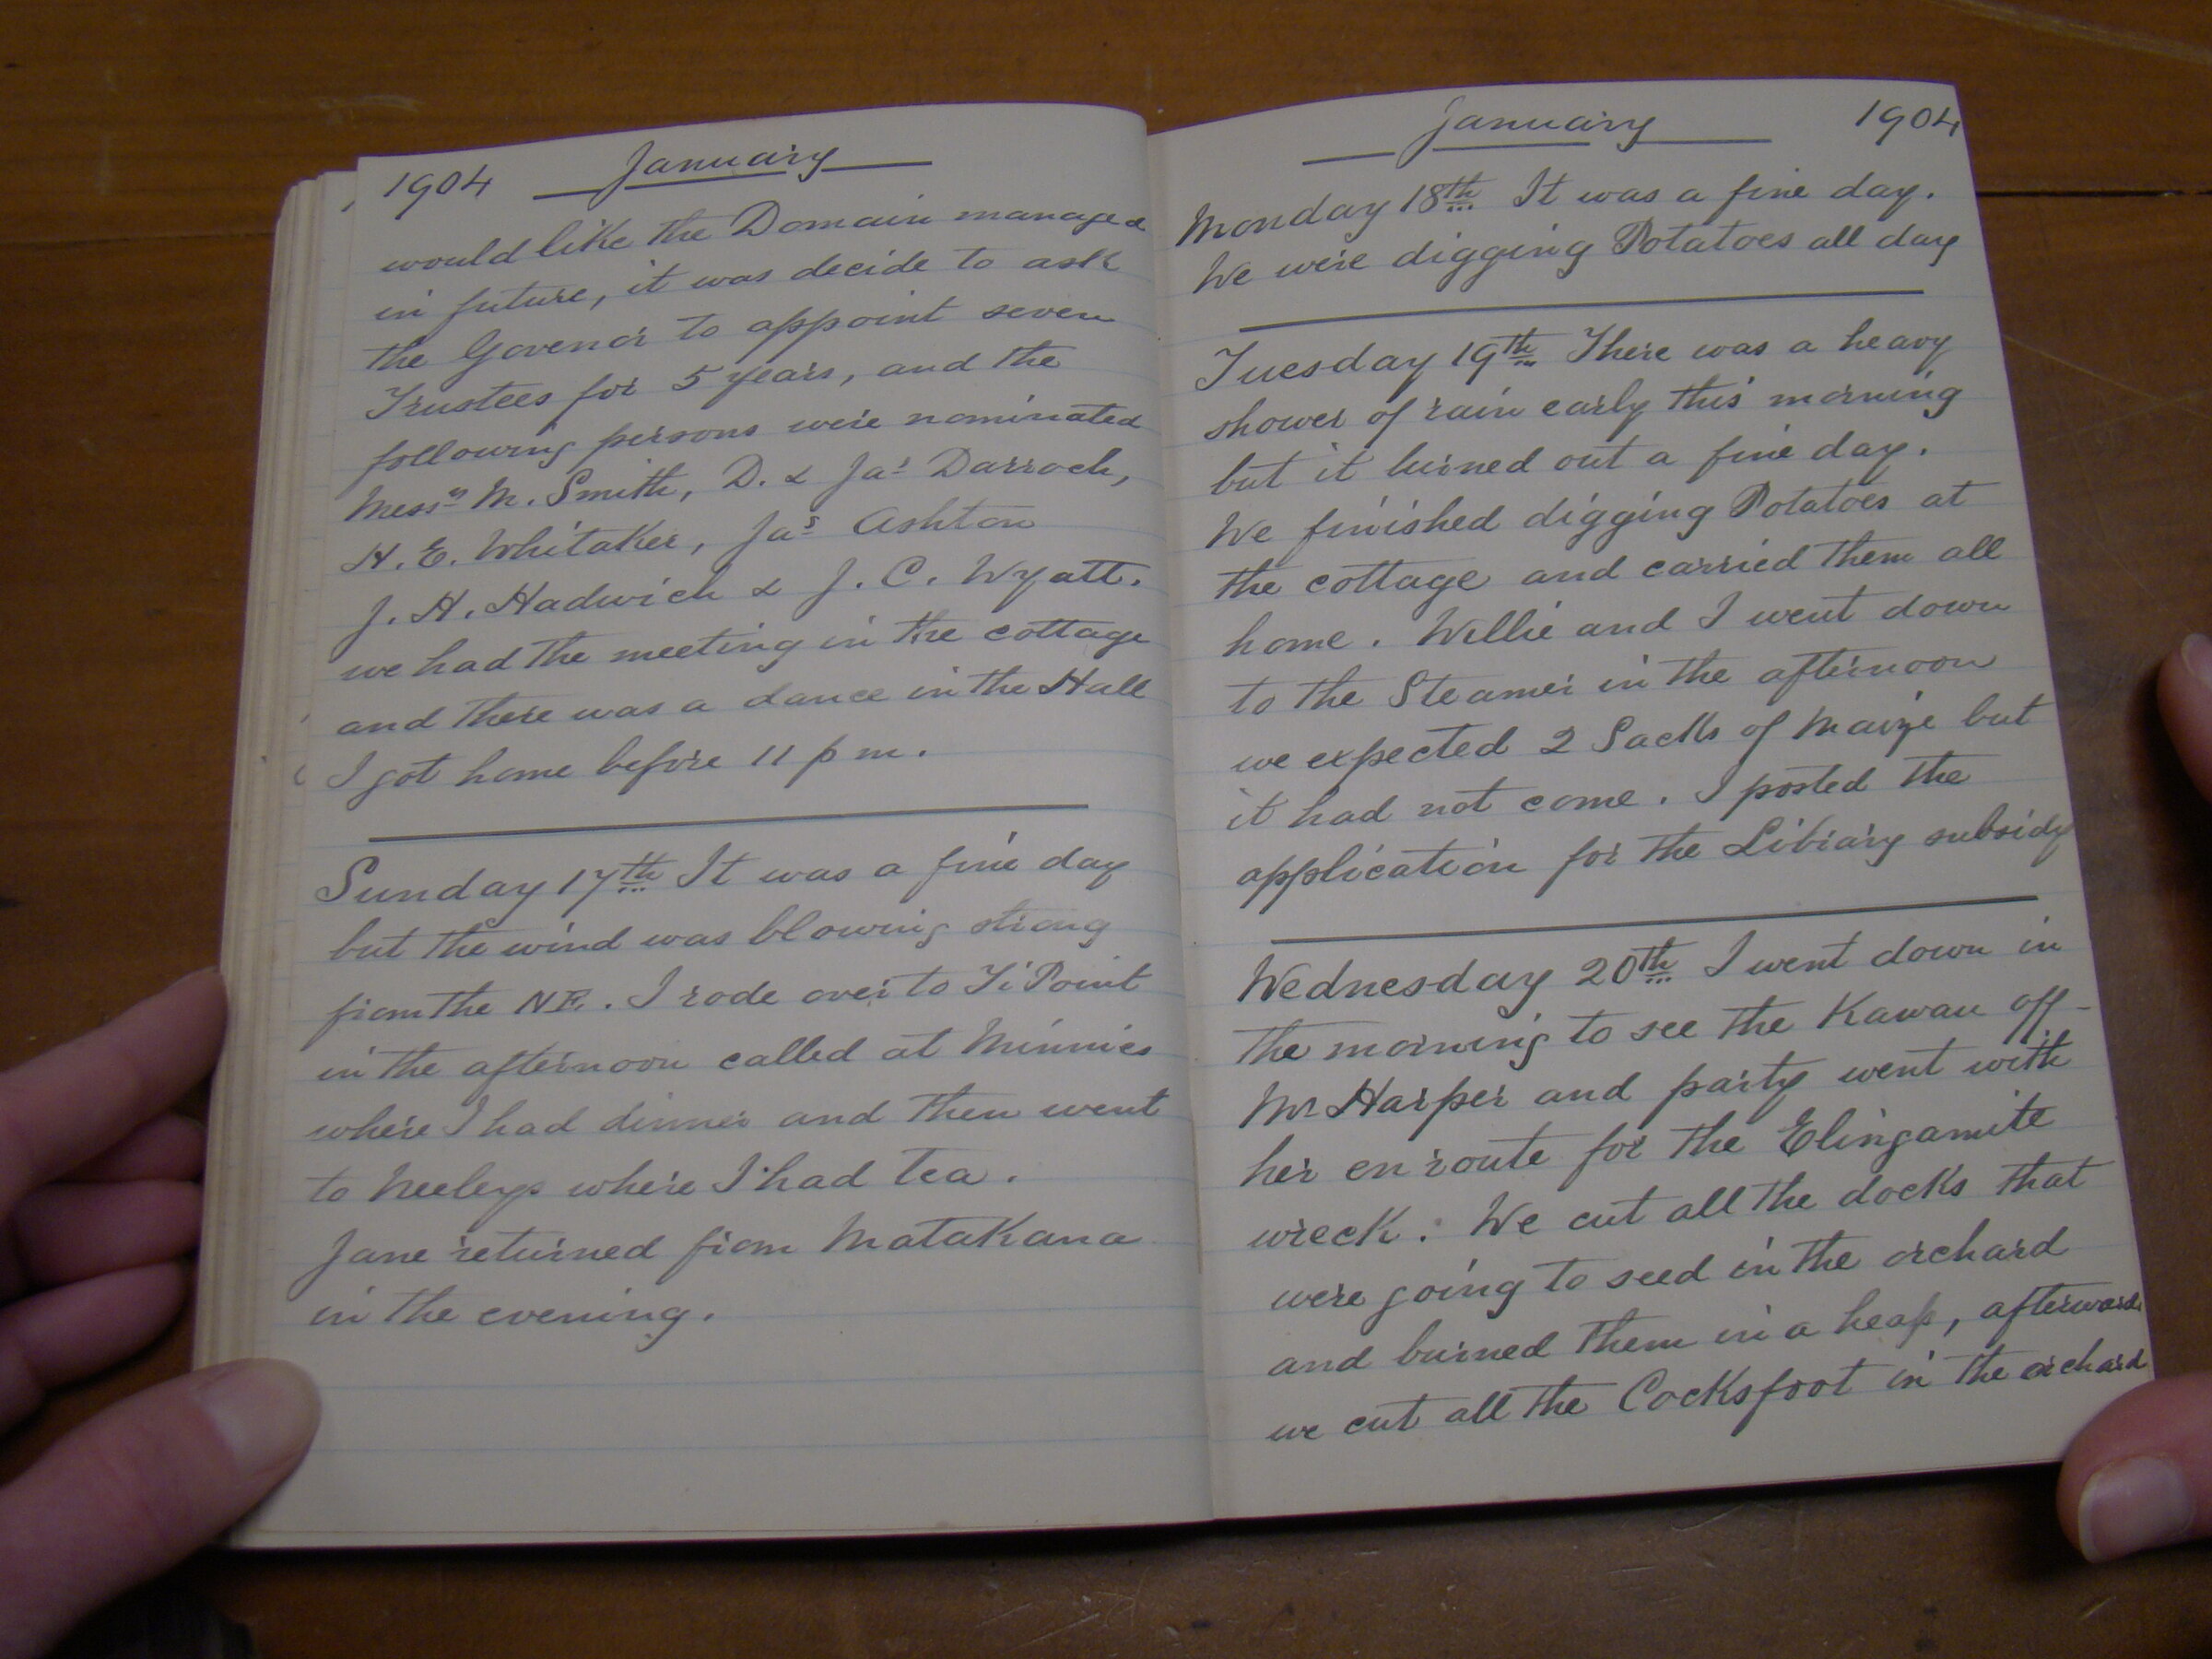 1904 January
would like the Domain managed
in future, it was decide to ask
the Govenor to appoint seven
Trustees for 5 years, and the
following persons were nominated
Messrs M. Smith, D. & Jas Darroch,
H. E. Whitaker, Jas Ashton
J. H. Hadwich & J. C. Wyatt.
we had the meeting in the cottage
and there was a dance in the Hall
I got home before 11 pm.
Sunday 17th It was a fine day
but the wind was blowing strong
from the NE. I rode over to Ti Point
in the afternoon called at Minnies
where I had dinner and then went
to Neeleys where I had tea.
Jane returned from Matakana
in the evening.
January 1904
Monday 18th It was a fine day.
We were digging Potatoes all day
Tuesday 19th There was a heavy
shower of rain early this morning
but it turned out a fine day.
We finished digging Potatoes at
the cottage and carried them all
home. Willie and I went down
to the Steamer in the afternoon
we expected 2 Sacks of Maize but
it had not come. I posted the
application for the Library subsidy
Wednesday 20th I went down in
the morning to see the Kawau off-
Mr Harper and party went with
her en route for the Elingamite
wreck. We cut all the docks that
were going to seed in the orchard
and burned them in a heap, afterwards
we cut all the Cocksfoot in the orchard